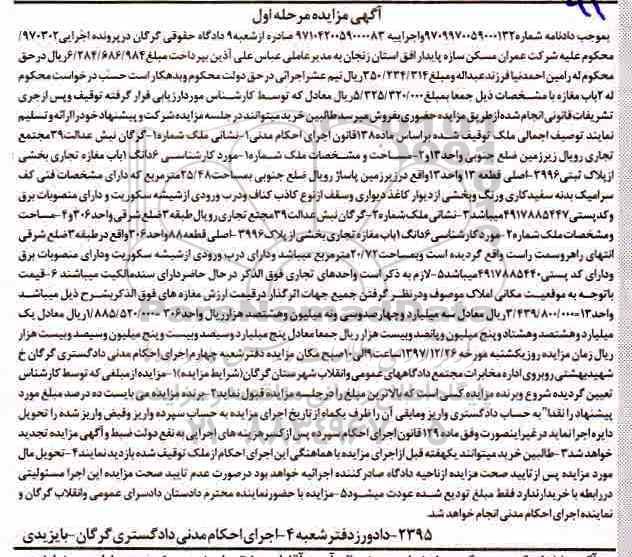 آگهی مزایده مرحله اول
بموجب دادنامه شماره ۹۷۰۹۹۷۰۰۵۹۰۰۰۱۳۲ واجراییه ۹۷۱۰۴۲۰۰۵۹۰۰۰۰۸۳ صادره ازشعبه۹ دادگاه حقوقی گرگان درپرونده اجرایی۹۷۰۳۰۲/
محکوم علیه شرکت عمران مسکن سازه پایدارافق استان زنجان به مدیرعاملی عباس علی آذین بپرداخت مبلغ۶/۲۸۴/۶۸۶/۹۸۴ریال درحق
محکوم له رامین احمدنیا فرزندعبداله ومبلغ۲۵۰/۲۳۴/۳۱۴ریال نیم عشراجرائی درحق دولت محکوم وبدهکاراست حسب درخواست محکوم
له ۲باب مغازه با مشخصات ذیل جمعا بمبلغ۵/۳۲۵/۳۲۰/۰۰۰ریال معادل که توسط کارشناس موردارزیابی قرار گرفته توقیف وپس ازجری
تشریفات قانونی انجام شده ازطریق مزایده حضوری بفروش میرسدطالبین خریدمیتوانند درجلسه مزایده شرکت و پیشنهادخودراارائه وتسلیم
نمایند توصیف اجمالی ملک توقیف شده براساس ماده۱۳۸قانون اجرای احکام مدنی۱-نشانی ملک شماره۱-گرگان نبش عدالت۳۹مجتمع
تجاری رویال زیرزمین ضلع جنوبی واحد۱۳و۲-مساحت و مشخصات ملک شماره۱-مورد کارشناسی ۶دانگ ۱باب مغازه تجاری بخشی
ازپلاک ثبتی۳۹۹۶-اصلی قطعه ۱۳ واحد۱۳واقع درزیرزمین پاساژ رویال ضلع جنوبی بمساحت۲۵/۴۸مترمربع که دارای مشخصات فنی کف
سرامیک بدنه سفیدکاری ورنگ وبخشی ازدیوار کاغذدیواری وسقف ازنوع کاذب کناف ودرب ورودی ازشیشه سکوریت و دارای منصوبات برق
وکدپستی۴۹۱۷۸۸۵۴۴۷میباشد۳-نشانی ملک شماره۲-گرگان نبش عدالت۳۹مجتمع تجاری رویال طبقه۳ضلع شرقی واحد۳۰۶و۴-مساحت
ومشخصات ملک شماره۲-مورد کارشناسی۶دانگ۱باب مغازه تجاری بخشی از پلاک۳۹۹۶-اصلی قطعه۸۸واحد۳۰۶واقع درطبقه۳ضلع شرقی
انتهای راهروسمت راست واقع گردیده است وبمساحت۲۰/۷۲مترمربع میباشد ودارای درب ورودی ازشیشه سکوریت ودارای منصوبات برق
ودارای کد پستی۴۹۱۷۸۸۵۴۴۰میباشد۵-لازم به ذکر است واحدهای تجاری فوق الذکر درحال حاضردارای سندمالکیت میباشند ۶-قیمت
باتوجه به موقعیت مکانی املاک موصوف ودرنظر گرفتن جمیع جهات اثرگذار درقیمت ارزش مغازه های فوق الذکربشرح ذیل میباشد
واحد۱۳=۳/۴۳۹/۸۰۰/۰۰۰ریال معادل سه میلیارد وچهارصدوسی ونه میلیون وهشتصد هزارریال واحد۳۰۶ =۱/۸۸۵/۵۲۰/۰۰۰ریال معادل یک
میلیارد وهشتصد وهشتاد و پنج میلیون وپانصد وبیست هزار ریال جمعا معادل پنج میلیارد وسیصد وبیست و پنج میلیون وسیصد وبیست هزار
ریال زمان مزایده روزیکشنبه مورخه ۱۳۹۷/۱۲/۲۶ساعت۹الی۱۰صبح مکان مزایده دفترشعبه چهارم اجرای احکام مدنی دادگستری گرگان خ
شهیدبهشتی روبروی اداره مخابرات مجتمع دادگاههای عمومی وانقلاب شهرستان گرگان(شرایط مزایده)۱-مزایده ازمبلغی که توسط کارشناس
تعیین گردیده شروع وبرنده مزایده کسی است که بالاترین مبلغ رادرجلسه مزایده قبول نماید۲-برنده مزایده می بایست ده درصد مبلغ مورد
پیشنهاد را نقدا" به حساب دادگستری واریز ومابقی آن را ظرف یکماه از تاریخ اجرای مزایده به حساب سپرده واریز وفیش واریز شده را تحویل
دایره اجرا نماید در غیراینصورت وفق ماده ۱۲۹ قانون اجرای احکام سپرده پس ازکسر هزینه های اجرایی به نفع دولت ضبط و آگهی مزایده تجدید
خواهدشد۳-طالبین خرید میتوانند یکهفته قبل از اجرای مزایده با هماهنگی این اجرای احکام ازملک توقیف شده بازدید نمایند ۴-تحویل مال
مورد مزایده پس از تایید صحت مزایده ازناحیه دادگاه صادرکننده اجرائیه خواهد بود درصورت عدم تایید صحت مزایده این اجرا مسئولیتی
دررابطه با خریدارندارد فقط مبلغ تودیع شده عودت میشود۵-مزایده با حضورنماینده محترم دادستان دادسرای عمومی وانقلاب گرگان و
نماینده اجرای احکام مدنی انجام خواهد شد.
۲۳۹۵-دادورز دفترشعبه۴-اجرای احکام مدنی دادگستری گرگان-بایزیدی